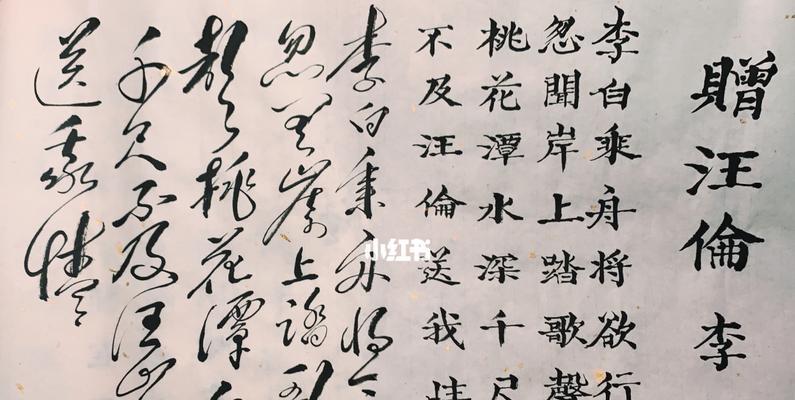 贈汪倫 李
李白乘舟将欲行
忽聞岸上踏歌聲
桃花潭水深千尺
不及汪倫送我情
李白乘舟将
忽聞岸上踏歌
聲桃花潭
千尺不及汪倫
送我情
小红书